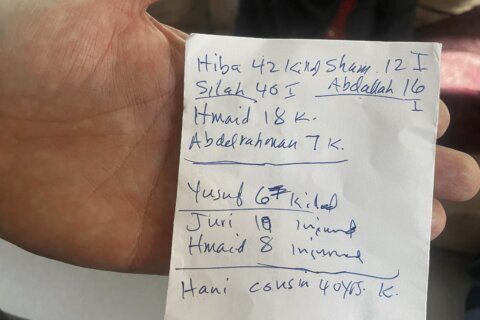 Hiba 42 killed Sham 12 I
Silah 40 I Abdallah 16
I
Hmaid 18 K.
Abdelrahman 7 K.
Yusuf killed
Juri injured
Hmaid 8 injured
Hani cousin 40yrs. K.